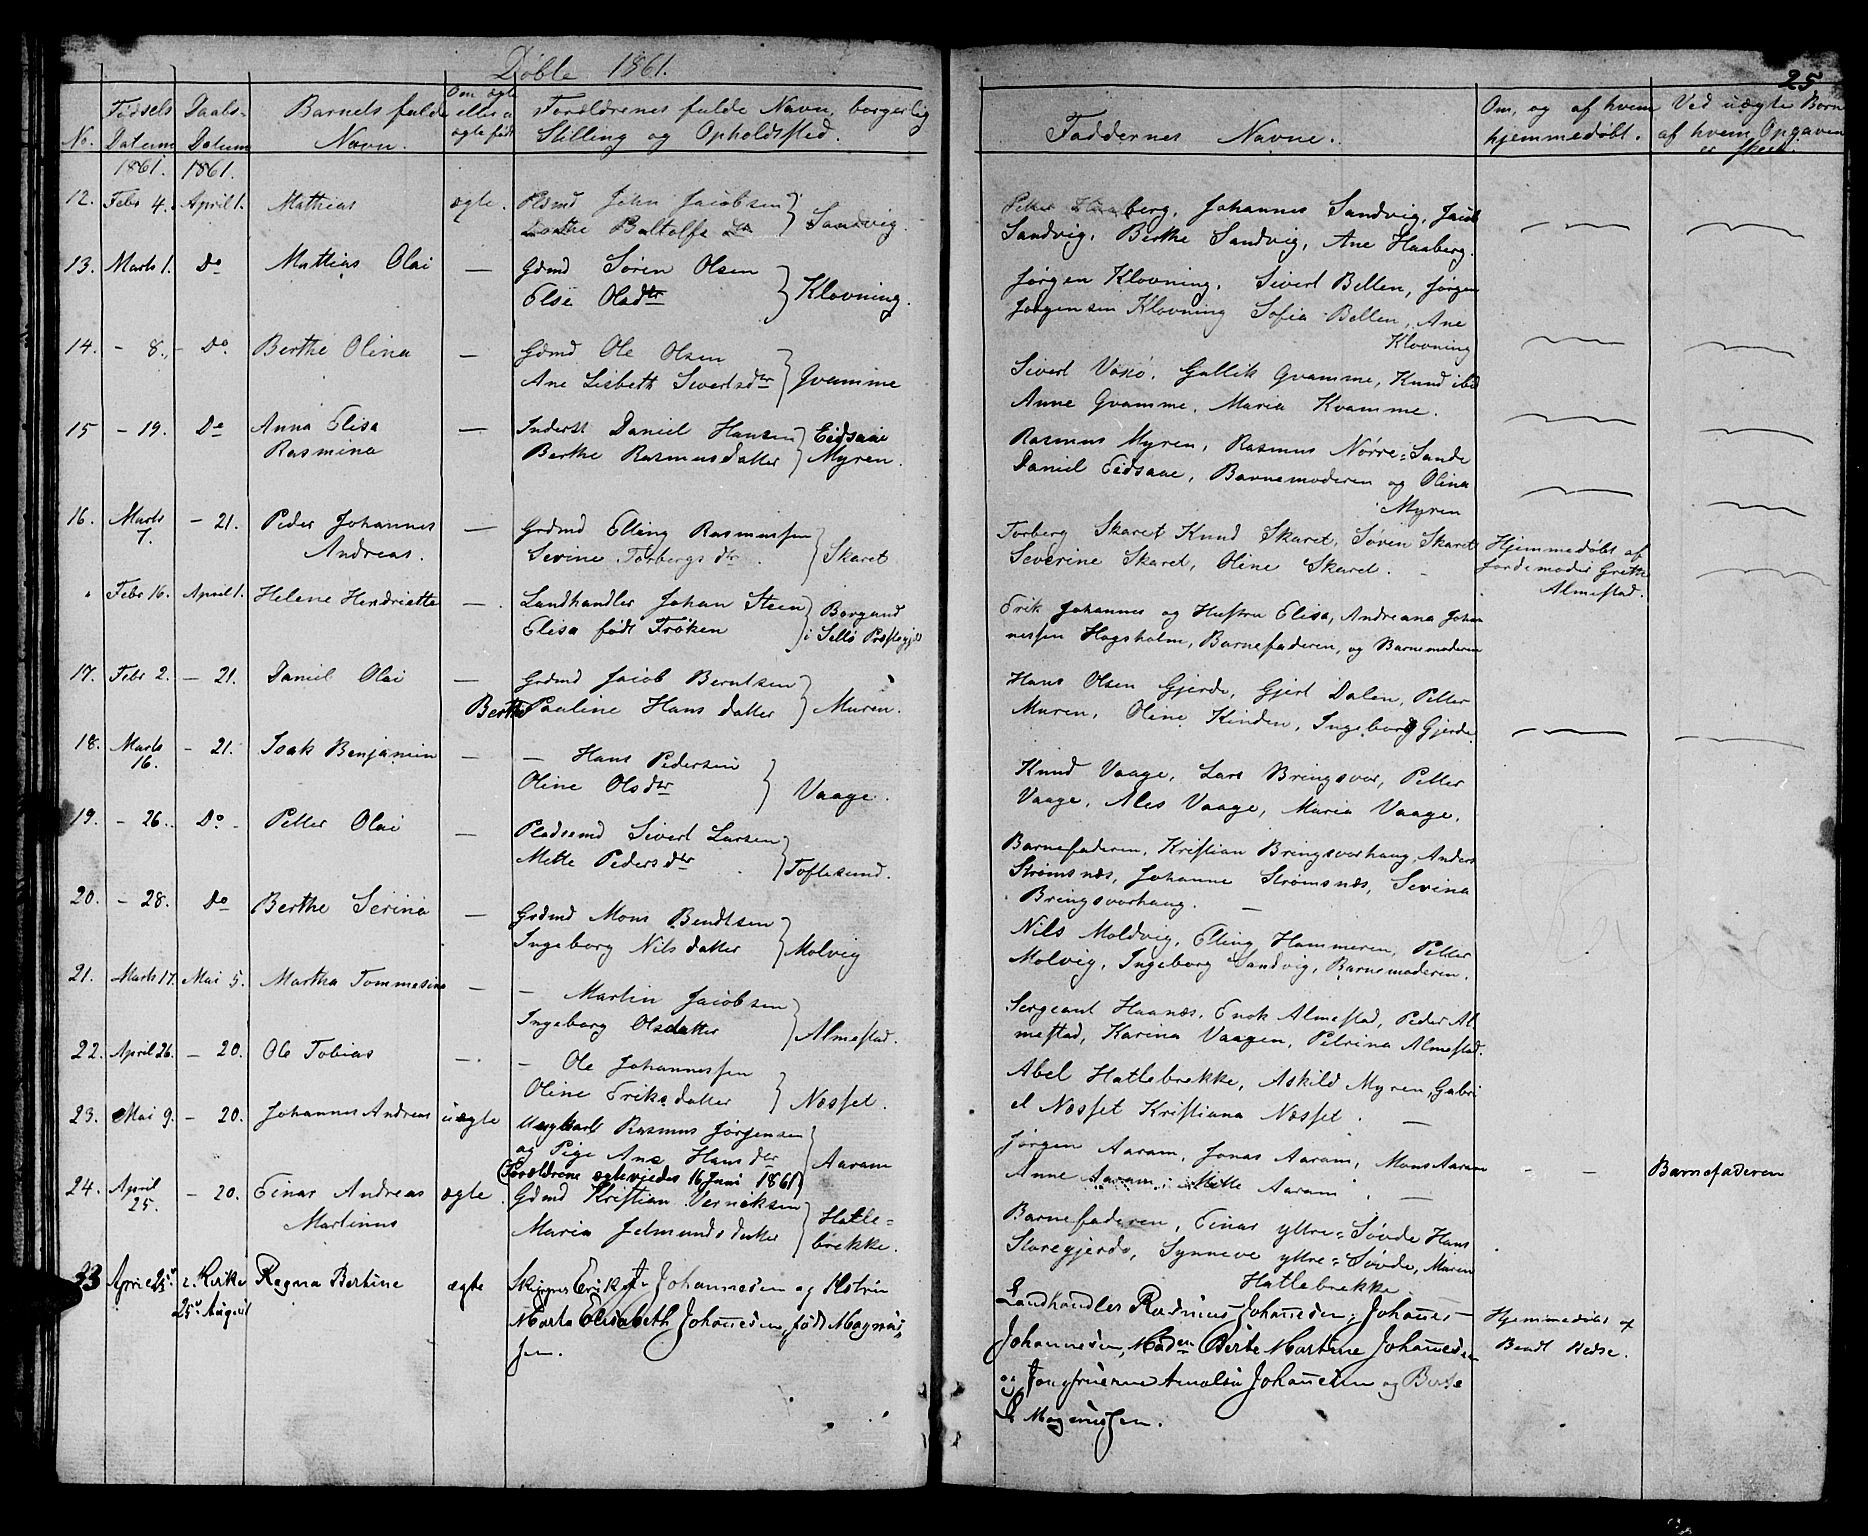 Døbte 1861.
25
No.
Fødsels Datum
Daabs- Datum
Barnets fulde Navn.
Om ægte eller uægte født
Forældrenes fulde Navn, borgerlig Stilling og Opholdssted.
Faddernes Navne.
Om, og af hvem hjemmedøbt.
Ved uægte Børn af hvem Opgaven er skeet.
1861. 1861.
12. Febr 4. April 1. Mathias ægte. Pldsmd John Jacobsen
Baltolfs Dr } Sandvig.
Petter Haaberg, Johannes Sandvig, Jacob
Sandvig, Berthe Sandvig, Ane Haaberg.
13. Marts 1. Do Mathias Olai — Gdmd Søren Olsen
Else Olsdtr } Klovning.
Jørgen Klovning, Sivert Bellen, Jørgen
Jørgensen Klovning Sofia Bellen, Ane
Klovning
14. - 8. - Do. Berthe Olina — Gdmd Ole Olsen
Ane Lisbeth Sivertsdtr } Qvamme
Sivert Voxø, Gallik Qvamme, Knud ibd
Anne Qvamme, Maria Kvamme.
15 - 19. Do Anna Elisa — Inderst Daniel Hansen } Eidsaae
Rasmina Berthe Rasmusdatter } Myren.
Rasmus Myren, Rasmus Nørre=Sande
Daniel Eidsaae, Barnemoderen og Olina
Myren
16. Marts 7. - 21. Peder Johannes — Grdmd Elling Rasmussen
Andreas. Sevine Torbergsdtr. } Skaret
Torberg Skaret Knud Skaret, Søren Skaret
Severine Skaret, Oline Skaret. -
Hjemmedøbt af
Jordemoder Grethe
Almestad.
Febr 16. April 1. Helene Hendriette —. Landhandler Johan Steen } Borgund
Elisa født Frøken } i Sellø Præstegjld
Erik Johannes og Hustru Elisa, Andreana Johan
nessen Hagsholm, Barnefaderen, og Barnemoderen
17. Febr 2. - 21. Daniel Olai — Grdmd Jacob Berntsen
Berthe Pauline Hansdatter } Muren.
Hans Olsen Gjerde, Gjert Dalen, Petter
Muren, Oline Kinden, Ingeborg Gjerde.
18. Marts 16. - 21. Isak Benjamin — - Hans Pedersen
Oline Olsdtr } Vaage.
Knud Vaage, Lars Bringsvor, Petter
Vaage, Ales Vaage, Maria Vaage.
19. - 26. Do - Petter Olai — Pladsemd Sivert Larsen
Mette Pedersdtr } Toftesund.
Barnefaderen, Kristian Bringsvorhaug, Anders
Strømsnæs, Johanne Strømsnæs, Sevina
Bringsvorhaug. —
20. - 28. Do Berthe Serina — Grdmd Mons Bendtsen
Ingeborg Nilsdatter } Molvig
Nils Moldvig, Elling Hammeren, Petter
Molvig, Ingeborg Sandvig, Barnemoderen.
21. Marts 17. Mai 5. Martha Tommesine — - Martin Jacobsen
Ingeborg Olsdatter } Almestad.
Sergeant Haanæs, Enok Almestad, Peder Al
mestad, Karina Vaagen, Petrina Almestad.
22. April 26. - 20. Ole Tobias —. - Ole Johannessen
Oline Eriksdatter } Næsset.
Abel Hatlebrekke, Askild Myren, Gabri
el Næsset Kristiana Næsset. —
23. Mai 9. - 20. Johannes Andreas uægte Ungkarl Rasmus Jørgensen
og Pige Ane Hansdtr } Aaram
(Forældrene ægteviedes 16 Juni 1861)
Jørgen Aaram, Jonas Aaram, Mons Aaram
Anne Aaram, Mette Aaram. —
- - Barnefaderen
24. April 25. - 20. Einar Andreas ægte. Gdmd Kristian Verniksen
Martinus Maria Jetmundsdatter } Hatle=
brekke.
Barnefaderen, Einar yttre=Søvde Hans
Storegjerde, Synneve yttre=Søvde, Maren
Hatlebrekke
33 April 25de i Kirke Ragna Bertine ægte Skipper Erik Johannesen og Hstru
25de August Marta Elisabeth Johannesen, født Magnus
sen.
Landhandler Rasmus Johannesen, Johannes
Johannesen, Madm Berte Martine Johannesen
og Jomfruerne Amalia Johannesen og Berte
L Magnussen.
Hjemmedøbt af
Bendt Redse.